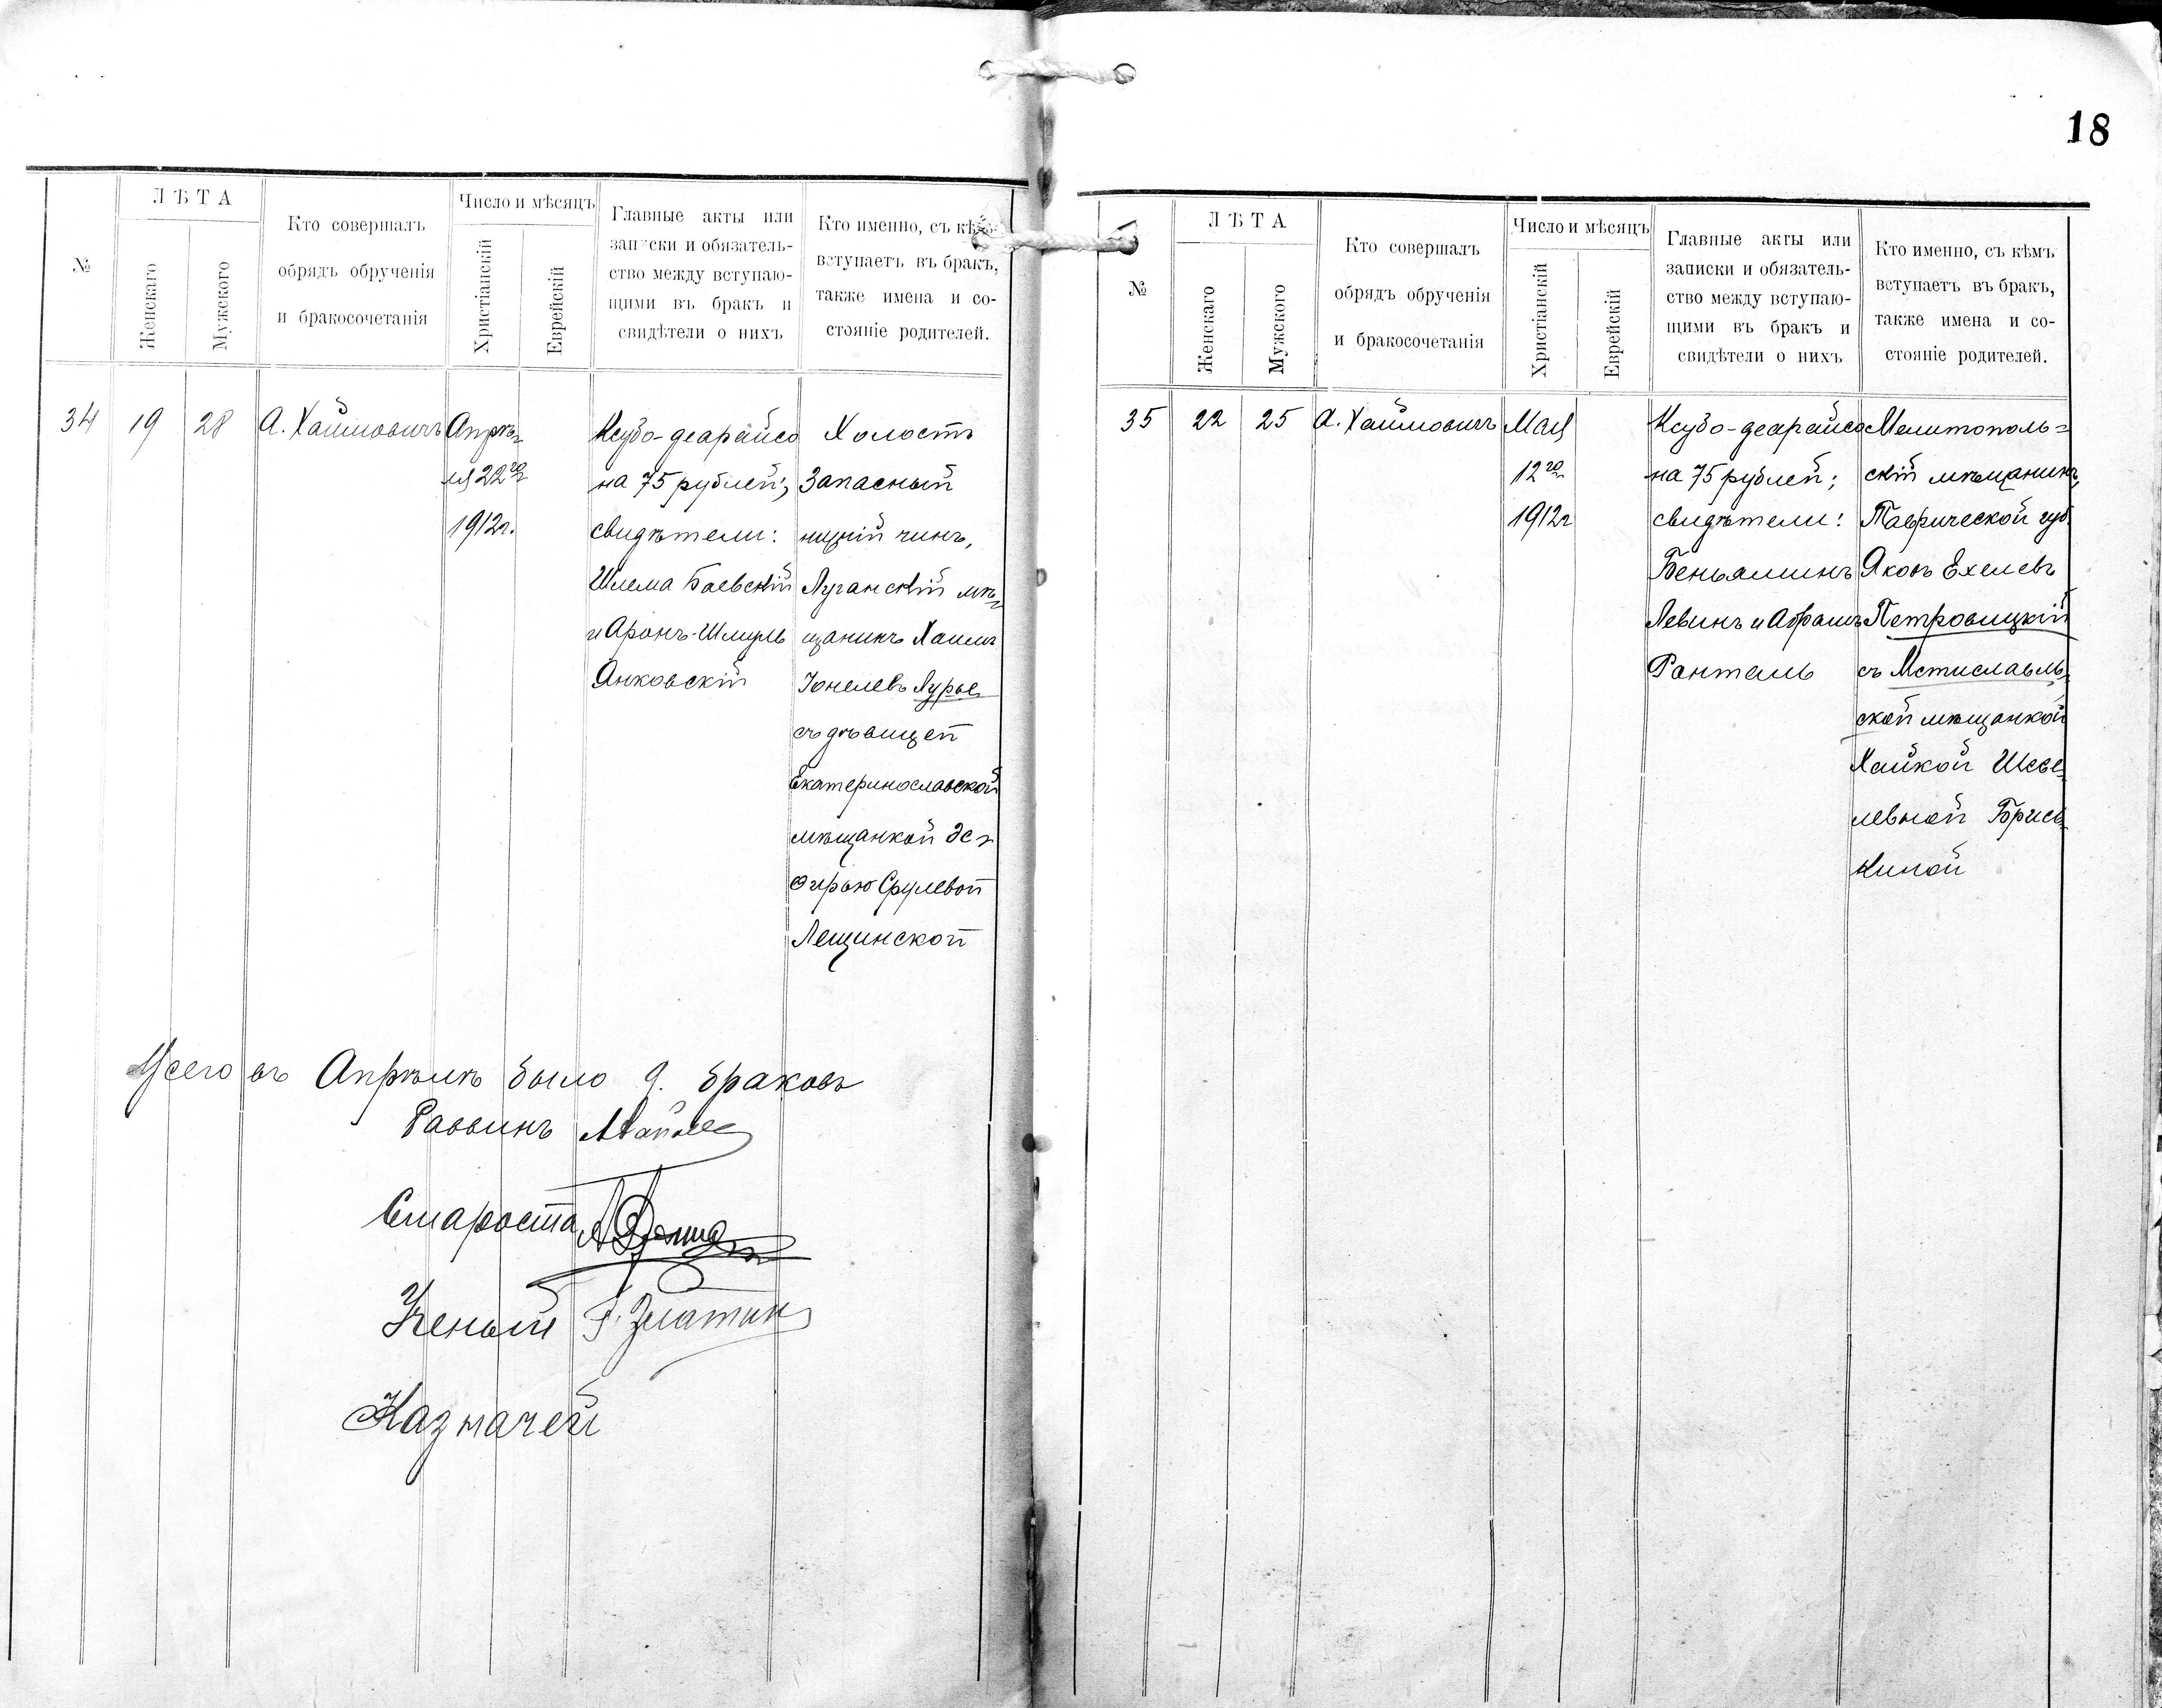 18
№
ЛѢТА
Женскаго
Мужского
Кто совершалъ
обрядъ обрученія
и бракосочетанія
Число и мѣсяцъ
Христіанскій
Еврейскій
Главные акты или
записки и обязатель-
ство между вступаю-
щими въ бракъ и
свидѣтели о нихъ
Кто именно, съ кѣмъ
вступаетъ въ бракъ,
также имена и со-
стояніе родителей.
34
19
28
А. Хаймовичъ
Апрѣ-
ля 22го
1912г.
Ксубо-деарайсо
на 75 рублей;
свидѣтели:
Шлема Баевскій
и Аронъ-Шмуль
Янковскій
Холостъ
Запасный
нижній чинъ,
Луганскій мѣ-
щанинъ Хаимъ
Лурье
съ дѣвицей
Екатеринославской
мѣщанкой Эс-
Срулевой
Лещинской
Всего въ Апрѣлѣ было 9. браковъ
Раввинъ
Староста
Ученый Г. Златин
Казначей
№
ЛѢТА
Женскаго
Мужского
Кто совершалъ
обрядъ обрученія
и бракосочетанія
Число и мѣсяцъ
Христіанскій
Еврейскій
Главные акты или
записки и обязатель-
ство между вступаю-
щими въ бракъ и
свидѣтели о нихъ
Кто именно, съ кѣмъ
вступаетъ въ бракъ,
также имена и со-
стояніе родителей.
35
22
25
А. Хаймовичъ
Мая
12го
1912г
Ксубо-деарайсо
на 75 рублей;
свидѣтели:
Беньяминъ
Левинъ и Абрамъ
Мелитополь-
скій мѣщанинъ,
Таврической губ.
Яковъ Ехелевъ
Петровицкій
съ Мстиславль-
ской мѣщанкой
Хайкой Шеве-
левной Брис-
киной